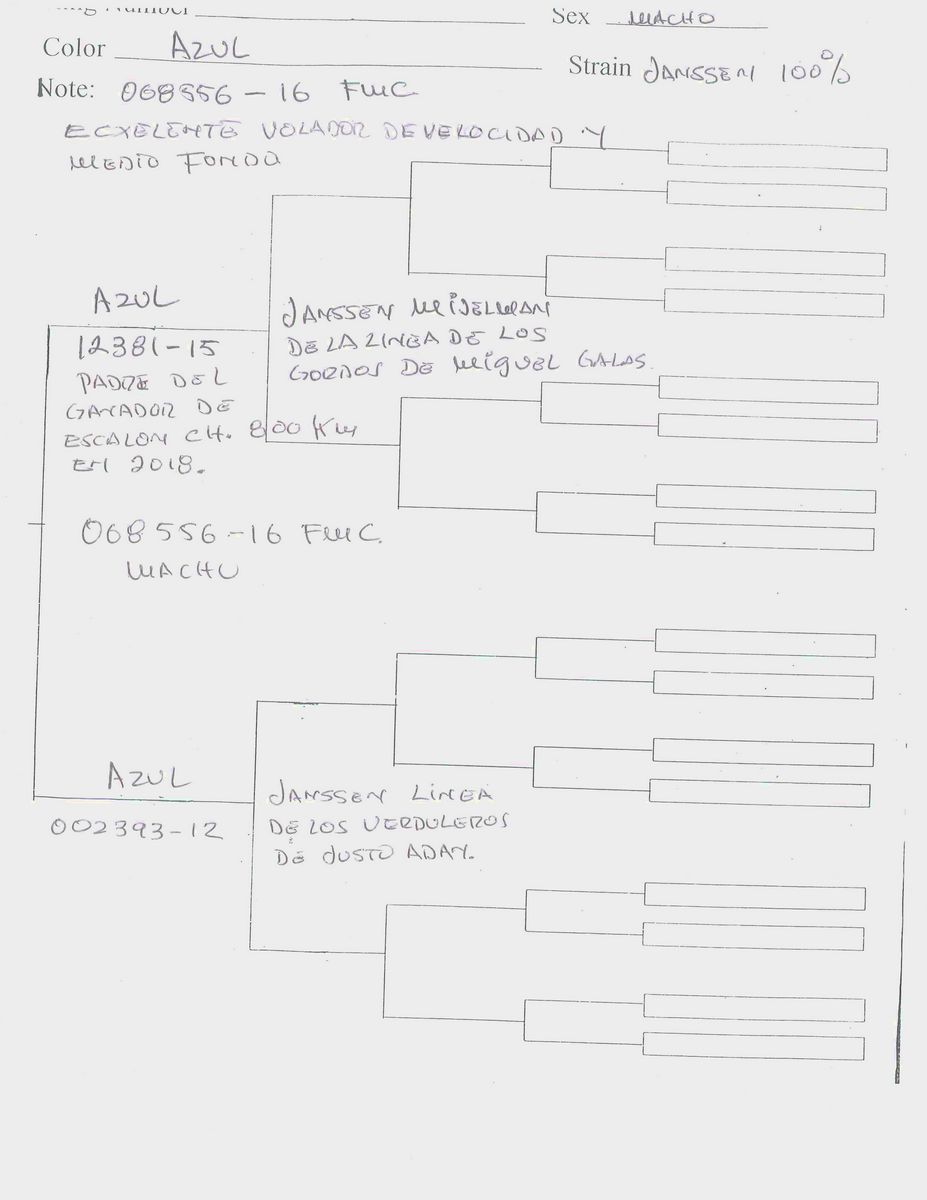 Sex MACHO
Color AZUL
Strain JANSSEN 100%
Note: 068556-16 FMC
ECXELENTE VOLADOR DE VELOCIDAD Y
MEDIO FONDO
AZUL
12381-15
PADRE DEL
GANADOR DE
ESCALON CH. 800 KM
EN 2018.
JANSSEN MEIJELMAN
DE LA LINEA DE LOS
GORDOS DE MIGUEL GALAS.
068556-16 FMC.
MACHO
AZUL
002393-12
JANSSEN LINEA
DE LOS VERDULEROS
DE JUSTO ADAY.